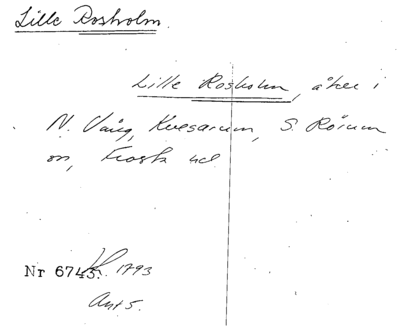 Lille Rosholm.
Lille Rosholm, åker i
N. Vång, Kvesarum, S. Rörum
sn, Frosta hd
Nr 6743. 1793
Akt 5.